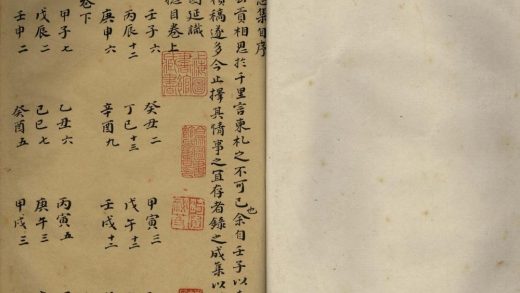 集自序
相思於千里言柬札之不可已也余自壬子以
積稿遂多今止擇其情事之宜存者錄之成集以
延識
目卷上
壬子六 癸丑二 甲寅三
丙辰十二 丁巳十三 戊午十二
庚申六 辛酉九 壬戌十二
卷下
甲子七 乙丑六 丙寅五
戊辰二 己巳七 庚午三
壬申二 癸酉五 甲戌三
上海圖書館藏書